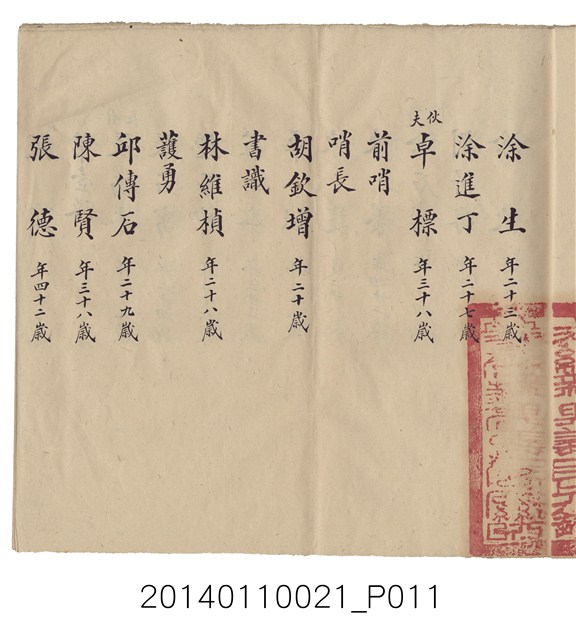 涂生 年二十三歲
涂進丁 年二十七歲
伙夫
卓標 年三十八歲
前哨
哨長
胡欽增 年二十歲
書識
林維楨 年二十八歲
護勇
邱傳石 年二十九歲
陳賢 年三十八歲
張德 年四十二歲
20140110021_P011